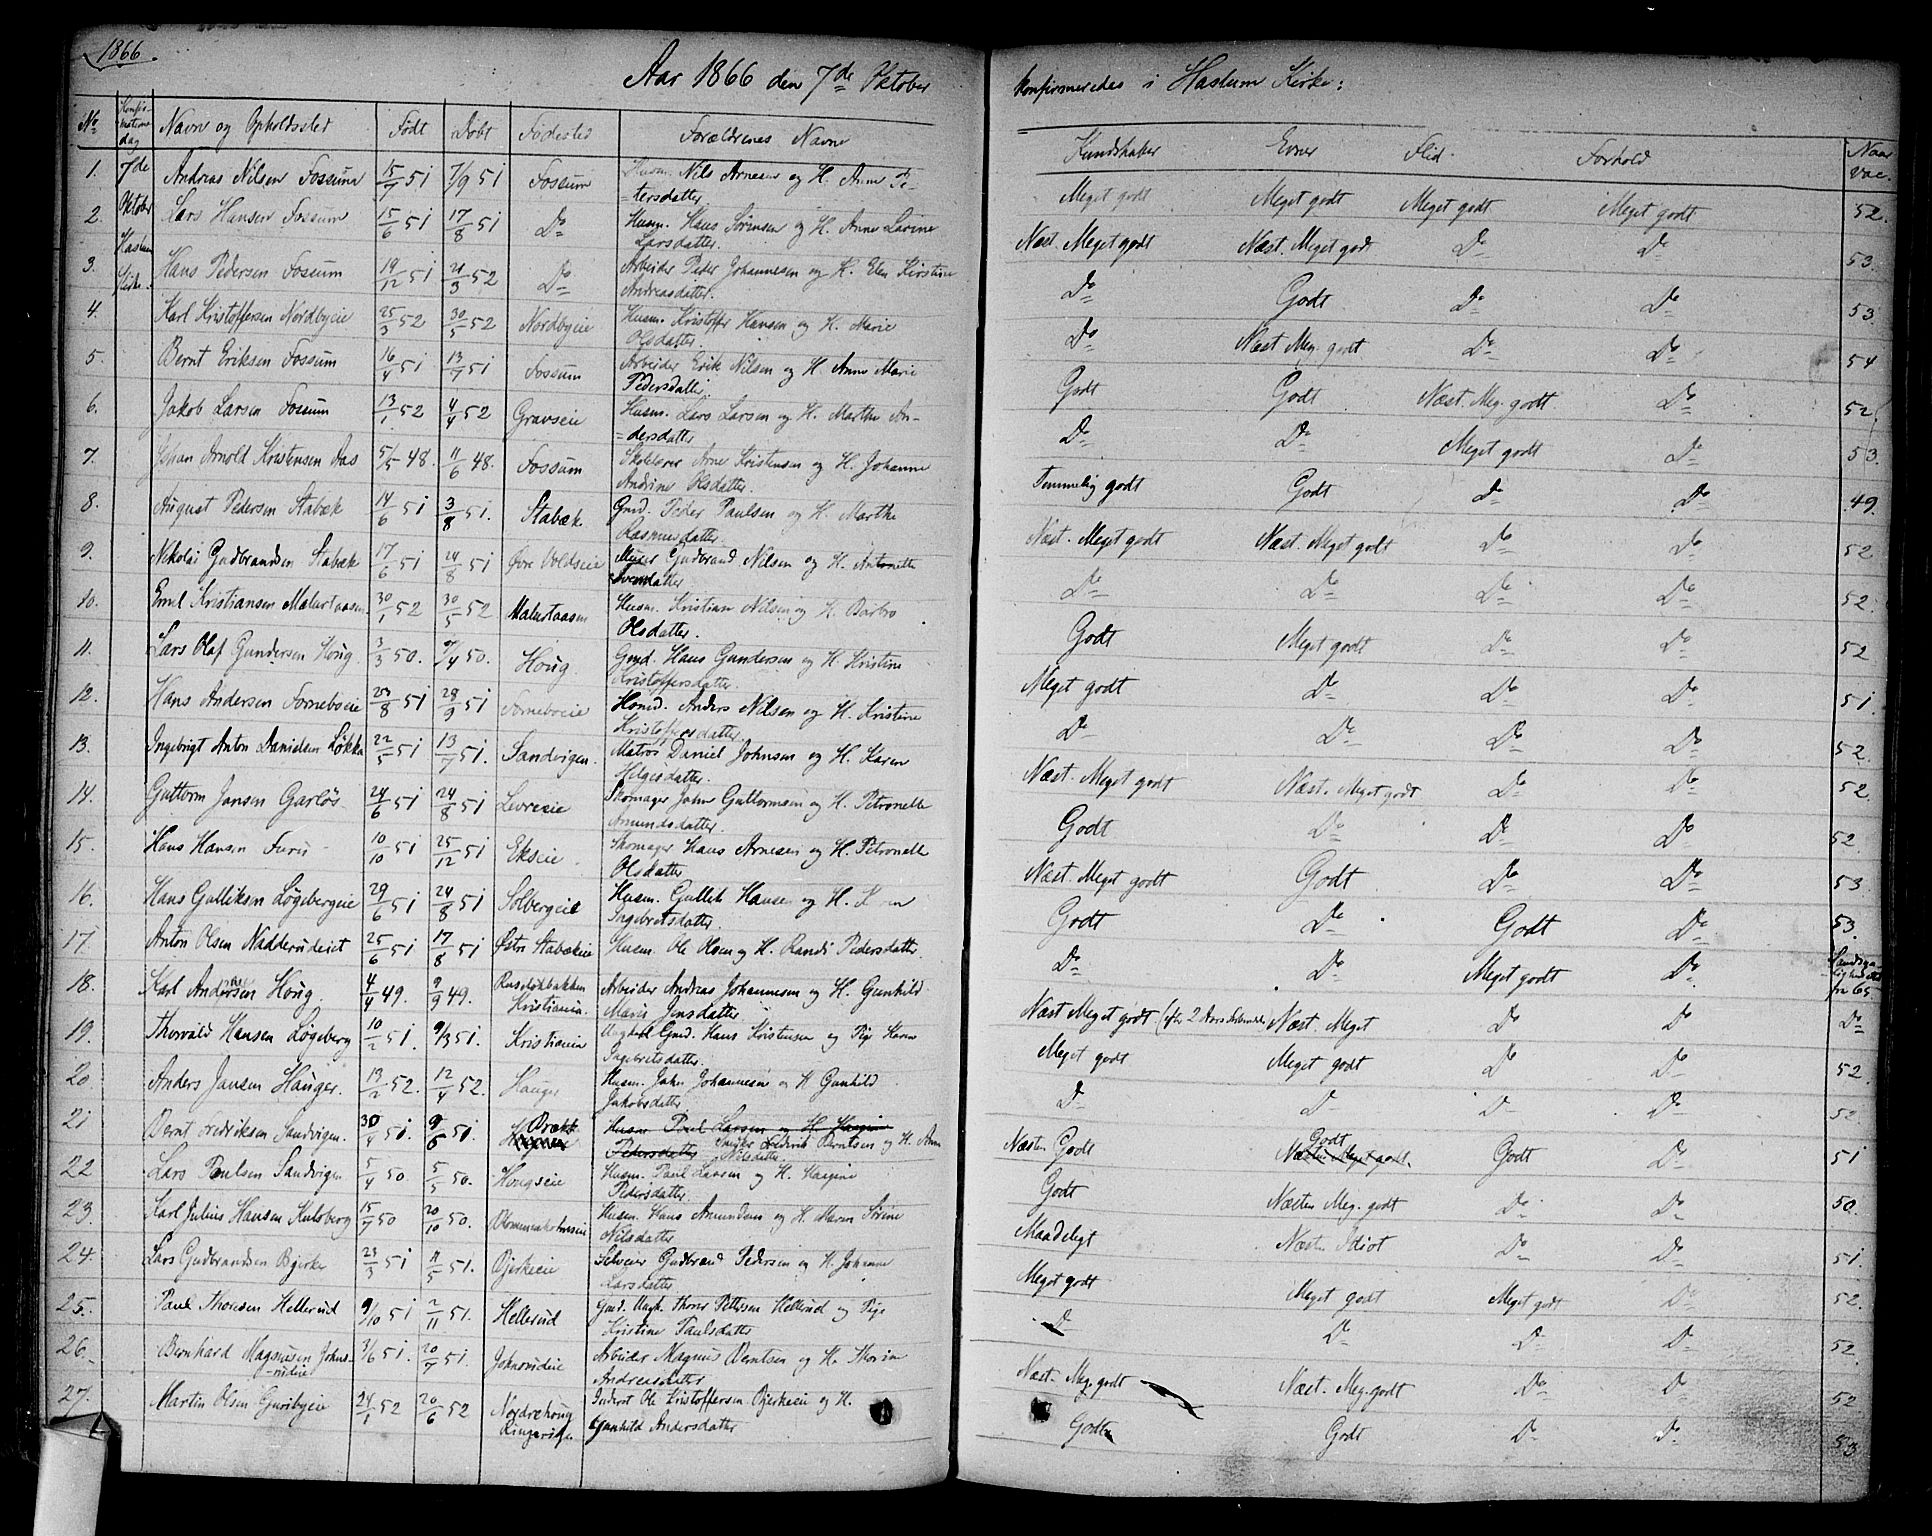 1866.
Aar 1866 den 7de Oktober konfirmeredes i Haslum Kirke:
No Konfirmations dag Navn og Opholdssted Født Døbt Fødested Forældrenes Navne Kundskaber Evner Flid Forhold Naar vac.
7de Oktober Haslum Kirke.
1. Andreas Nilsen Fossum 15/7 51 7/9 51 Fossum Husm. Nils Arnesen og H. Anne Pe- Meget godt Meget godt Meget godt Meget godt 52.
=tersdatter.
2. Lars Hansen Fossum 15/6 51 17/8 51 Do Husm. Hans Sørensen og H. Anne Lovine Næst. Meget godt Næst. Meget godt Do Do 53.
Larsdatter.
3. Hans Pedersen Fossum 19/12 51 21/3 52 Do Arbeider Peder Johannesen og H. Elen Kirstine Do Godt Do Do 53.
Andreasdatter.
4. Karl Kristoffersen Nordbyeie 25/3 52 30/5 52 Nordbyeie Husm. Kristoffer Hansen og H. Marie Do Næst Meg. godt Do Do 54
Olsdatter.
5. Bernt Eriksen Fossum 16/4 51 13/7 51 Fossum Arbeider Erik Nilsen og H. Anne Marie Godt Godt Næst. Meg. godt Do 52.
Pedersdatter
6. Jakob Larsen Fossum 13/1 52 4/4 52 Gravseie Husm. Lars Larsen og H. Marthe An- Do Do Meget godt Do 53.
=dersdatter
7. Johan Arnold Kristensen Aas 5/5 48. 11/6 48. Fossum Skolelærer Arne Kristensen og H. Johanne Temmelig godt Godt Do Do 49.
Andrine Olsdatter.
8. August Pedersen Stabæk 14/6 51 3/8 51. Stabæk Gmd. Peder Paulsen og H. Marthe Næst. Meget godt Næst. Meget godt Do Do 52
Rasmusdatter.
9. Nikolai Gudbrandsen Stabæk 17/6 51 24/8 51 Øvre Voldseie Murer Gudbrand Nilsen og H. Antonette Do Do Do Do 52.
Svendatter
10. Emil Kristiansen Malurtaasen 30/1 52 30/5 52 Malurtaasen Husm. Kristian Nilsen og H. Barbro Godt Meget godt Do Do 52
Olsdatter.
11. Lars Olaf Gundersen Houg 3/3 50. 7/4 50. Houg. Gmd. Hans Gundersen og H. Kristine Meget godt Do Do Do 51.
Kristoffersdatter.
12. Hans Andersen Forneboeie 23/8 51 28/9 51 Forneboeie Husmd. Anders Nilsen og H. Kristine Do Do Do Do 52.
Kristoffersdatter.
13. Ingebrigt Anton Danielsen Løkke 22/5 51 13/7 51. Sandvigen. Matros Daniel Johnsen og H. Karen Næst. Meget godt Næst. Meget godt Do Do 52.
Helgesdatter.
14. Guttorm Jansen Garløs 24/6 51 24/8 51 Levreeie Skomager Jahn Guttormsen og H. Petronelle Godt Do Do Do 52.
Amundsdatter.
15. Hans Hansen Furu 10/10 51 25/12 51 Ekseie Skomager Hans Arnesen og H. Petronelle Næst. Meget godt Godt Do Do 53
Olsdatter
16. Hans Gulliksen Løgebergeie 29/6 51 24/8 51 Solbergeie Husm. Gullek Hansen og H. Godt Do Godt Do 53.
Ingebretsdatter.
17. Anton Olsen Nadderudeiet 25/6 51 17/8 51 Østre Stabækeie Husm. Ole Olsen og H. Randi Pedersdatter Do Do Meget godt Do
18. Karl Andersen Houg. 4/4 49. 9/9 49. Ruseløkbakken Arbeider Andreas Johannesen og H. Gunhild Næst Meget godt (efter 2 Aars Næst. Meget Do Do Do
Kristiania. Marie Jensdatter.
19. Thorvald Hansen Løgeberg 10/2 51. 9/3 51. Kristiania Ungkarl Gmd. Hans Kristensen og Pige Karen Meget godt Meget godt Do Do 52.
Ingebretsdatter.
20. Anders Jansen Hauger. 13/2 52. 12/4 52. Hauger Husm. Jahn Johannesen og H Gunhild Do Do Do Do 52.
Jakobsdatter.
21 Bernt Fredriksen Sandvigen. 30/4 51. 9/6 51. Bræk Husm Paul Larsen og H. Hagine Næsten Godt Godt Næsten Meget godt. Godt Do 51
Pedersdatter Fredrik Berntsen og H. Anne
Nilsdatter.
22 Lars Paulsen Sandvigen 5/4 50. 5/5 50. Hougseie Husm. Paul Larsen og H. Hagine Godt Næsten Meg. godt Do Do 50.
Pedersdatter.
23. Karl Julius Hansen Kulsberg 15/7 50 20/10 50. Blommenholmseie Husm. Hans Amundsen og H. Maren Sørine Maadeligt Næsten Idiot Do Do 51.
Nilsdatter
24. Lars Gudbrandsen Bjerke 23/3 51 11/5 51. Bjerkeeie Selveier Gudbrand Pedersen og H. Johanne Meget godt Meget godt Meget godt Do 52.
Larsdatter
25. Paul Thoresen Hellerud 9/10 51 2/11 51. Hellerud Gmd. Ungk. Thore Pettersen Hellerud og Pige Do Do Do Do 52.
Kristine Paulsdatter
26. Bernhard Magnusen Johns- 3/6 51. 20/7 51. Johnsrudeie Arbeider Magnus Berntsen og H. Thorine Næst. Meg. godt Næst. Meg. godt Do Do 52
-rudeie Andreasdatter.
27. Martin Olsen Guribyeie 24/1 52 20/6 52 Nordrehoug Inderst Ole Kristoffersen Bjerkeeie og H. Godt Godt Do Do 53
Ringerige Gunhild Andersdatter